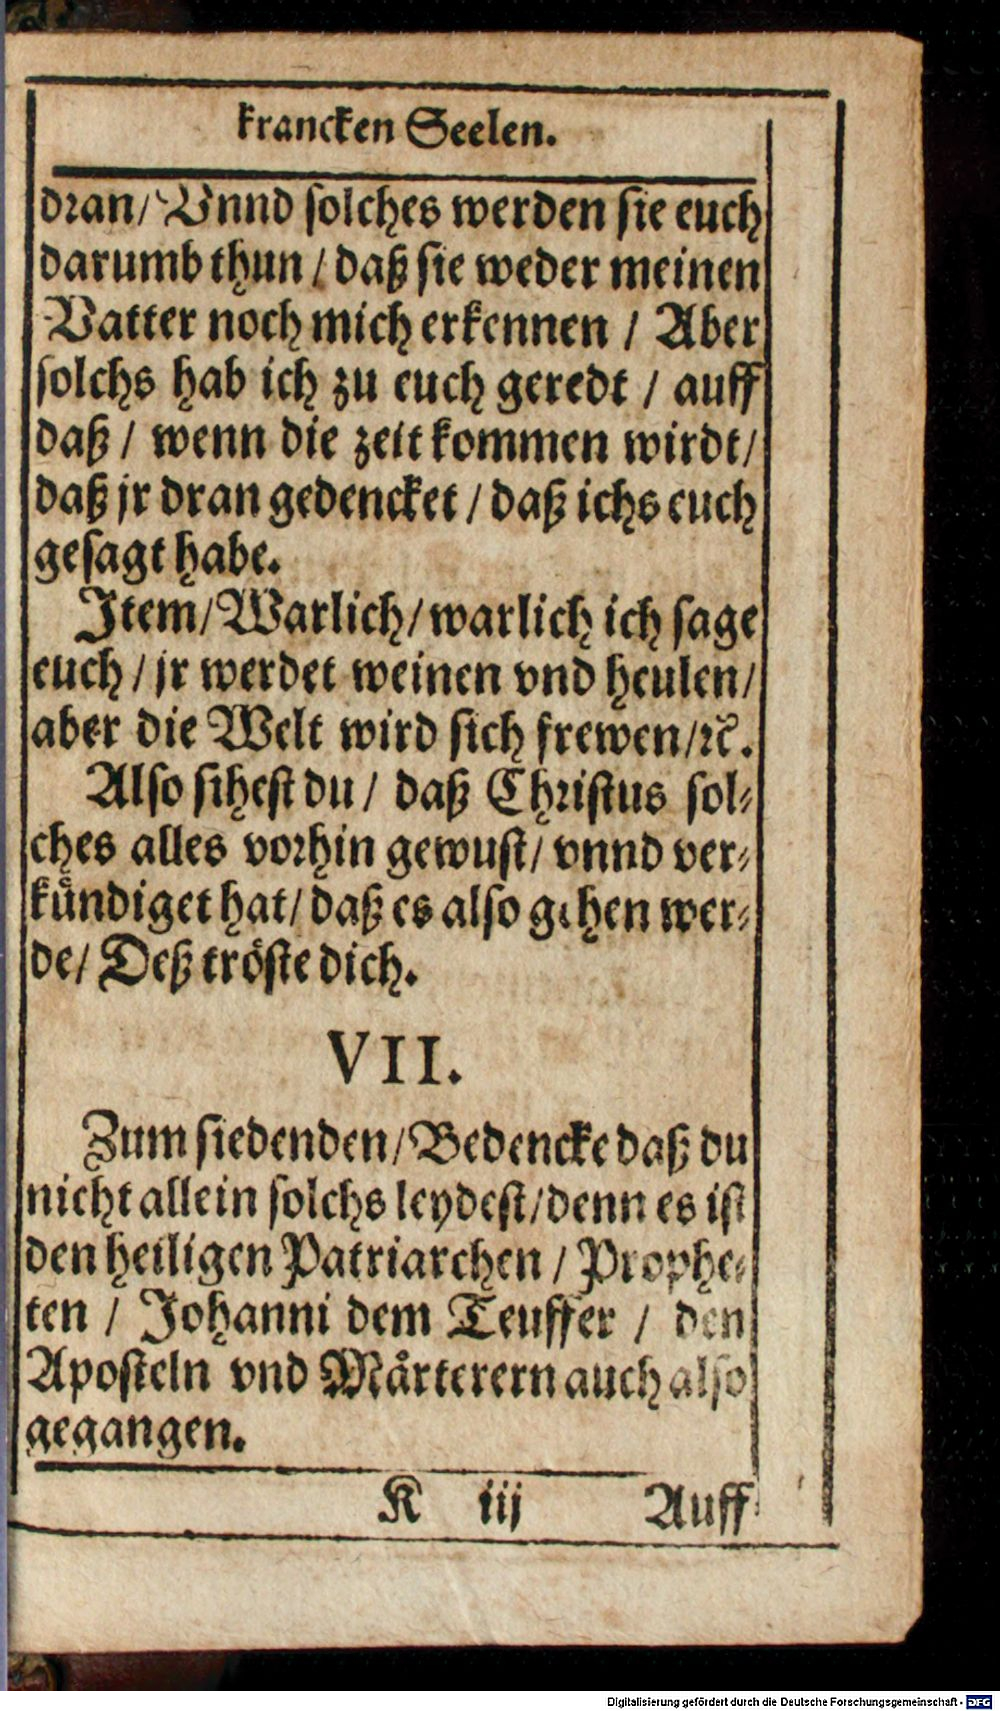 krancken Seelen.
dran/ Vnnd solches werden sie euch
darumb thun / daß sie weder meinen
Vatter noch mich erkennen / Aber
solchs hab ich zu euch geredt / auff
daß / wenn die zeit kommen wirdt/
daß jr dran gedencket / daß ichs euch
gesagt habe.
Item/ Warlich/ warlich ich sage
euch / jr werdet weinen vnd heulen/
aber die Welt wird sich frewen/ꝛc.
Also sihest du / daß Christus sol-
ches alles vorhin gewust/ vnnd ver-
kuͤndiget hat/ daß es also gehen wer-
de/ Deß troͤste dich.
VII.
Zum siebenden/ Bedencke daß du
nicht allein solchs leydest/denn es ist
den heiligen Patriarchen / Prophe-
ten / Johanni dem Teuffer / den
Aposteln vnd Maͤrterern auch also
gegangen.
K iij Auff
Digitalisierung gefördert durch die Deutsche Forschungsgemeinschaft - DFG